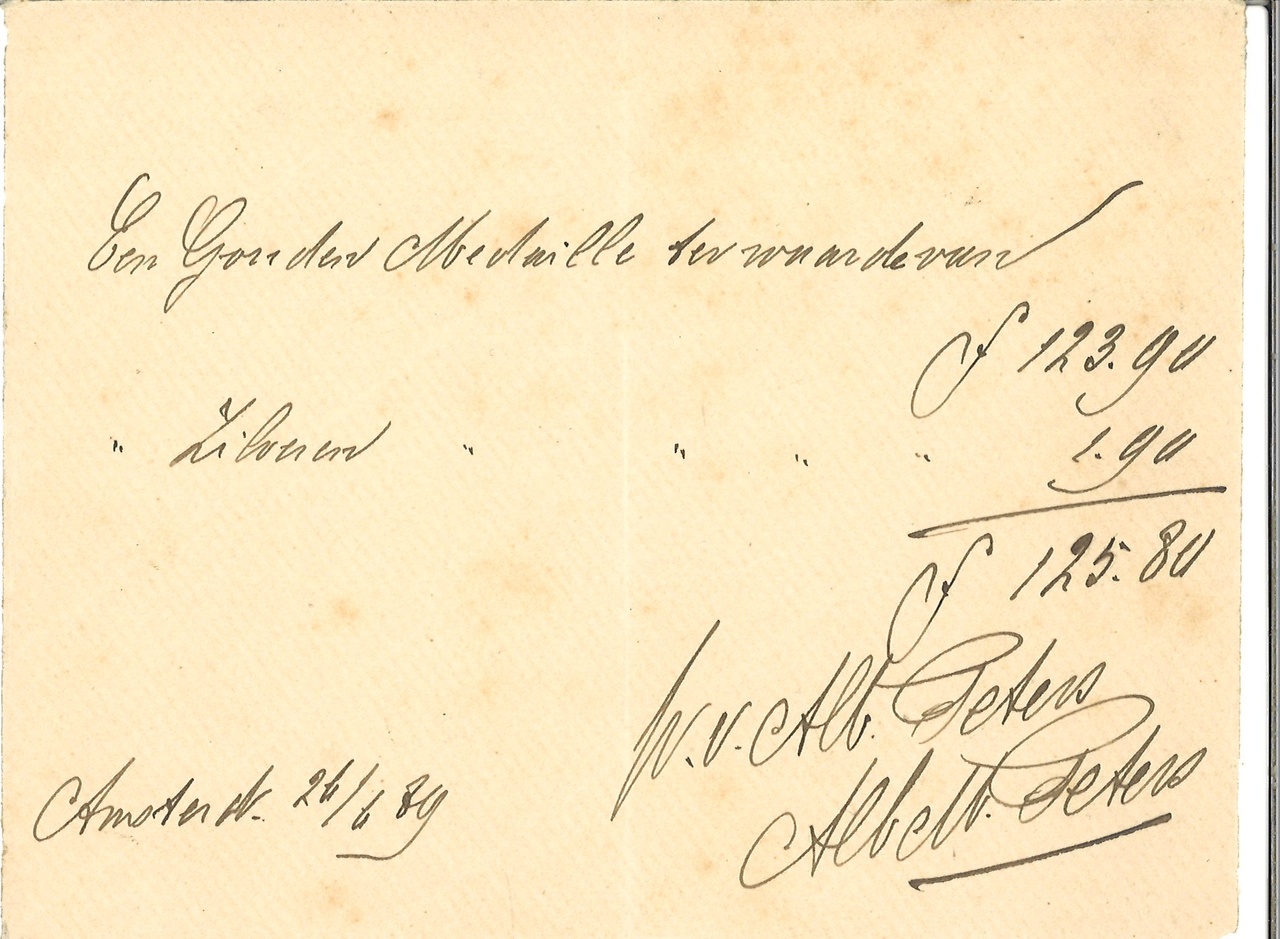 Een Gouden Medaille ter waarde van
f 123.90
" Zilveren " " " " 1.90
f 125.80
p. v. Alb. Peters
Amsterd. 26/6 89 Alb M. Peters